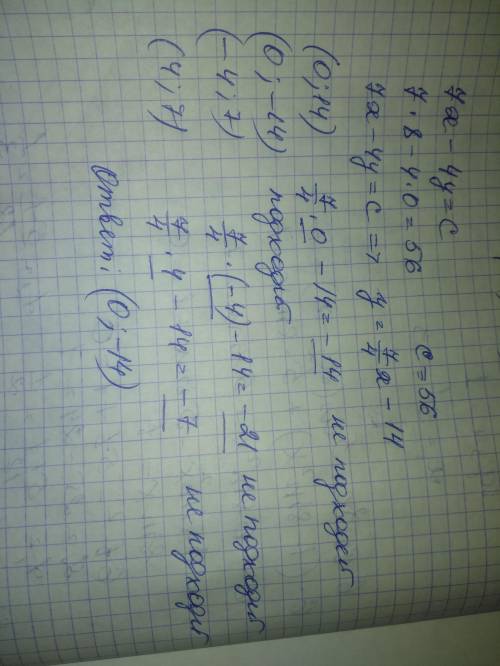 7x - 4y = c
7 · 8 - 4 · 0 = 56 c = 56
7x - 4y = c => y = 7/4 x - 14
(0; 14) 7/4 · 0 - 14 = -14 не подходит
(0; -14) подходит
(-4; 7) 7/4 · (-4) - 14 = -21 не подходит
(4; 7) 7/4 · 4 - 14 = -7 не подходит
Ответ: (0; -14)